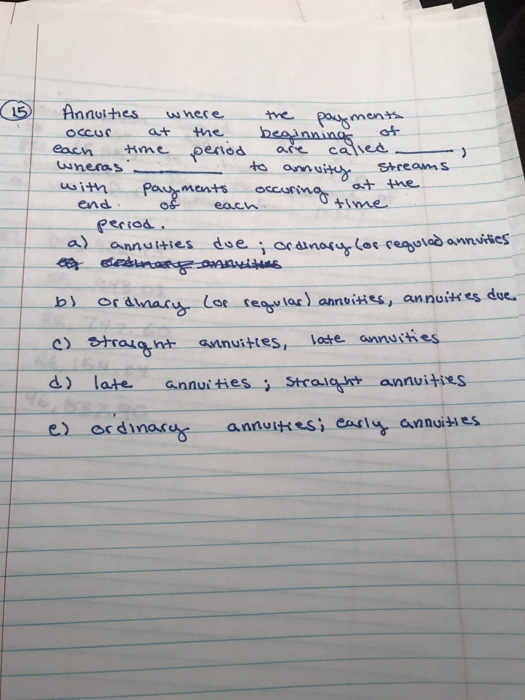 15 Annuities where the payments
occur at the beginning of
each time period are called ______,
wheras ______ to annuity streams
with payments occuring at the
end of each time
period.
a) annuities due ; ordinary (or regular) annuities
ordinary annuities
b) ordinary (or regular) annuities, annuities due
c) straight annuities, late annuities
d) late annuities ; straight annuities
e) ordinary annuities; early annuities